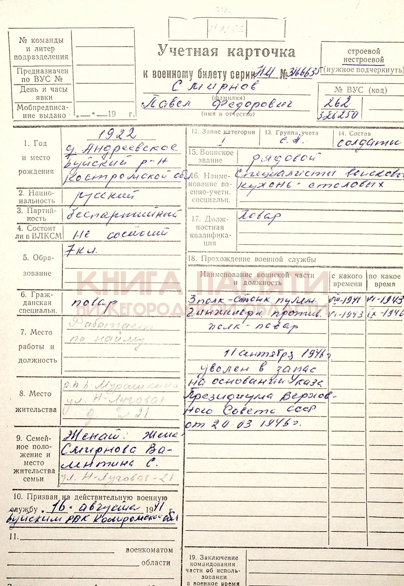 № команды
и литер
подразделения
Предназначен
по ВУС №
День и часы
явки
Мобпредписание выдано „ “ 19 г.
Учетная карточка
к военному билету серии НЦ №
Смирнов
(фамилия)
Павел Федорович
(имя и отчество)
строевой
нестроевой
(нужное подчеркнуть)
№ ВУС (код)
262
326250
1. Год
и место
рождения
1922
д. Андреевское
Буйский р-н
Костромской обл
2. Национальность
русский
3. Партийность
беспартийный
4. Состоит
ли в ВЛКСМ
не состоит
5. Образование
7 кл.
6. Гражданская
специальн.
повар
7. Место
работы и
должность
Работает
по найму
8. Место
жительства
ул. Н-Луговая
д. 21
9. Семейное положение и
место
жительства
семьи
Женат: жена
Смирнова Валентина С.
ул. Н-Луговая-21
10. Призван на действительную военную
службу „16“ августа 1941
Буйским РВК Костромской обл
11.
военкоматом
области
12. Запас категория
1
13. Группа учета
с.а.
14. Состав
солдаты
15. Воинское
звание
рядовой
16. Наименование военно-учетн.
специальн.
Специалисты войсковых
кухонь-столовых
17. Должностная
квалификация
Повар
18. Прохождение военной службы
Наименование воинской части
должность
с какого
времени
по какое
время
VIII-1941
VI-1943
VI-1943
IX-1946
полк-повар
11 сентября 1946 г
уволен в запас
на основании Указа
Президиума Верховного Совета СССР
от 20 03 1946 г.
19. Заключение
командования
части об использовании
в военное время
КНИГА ПАМЯТИ